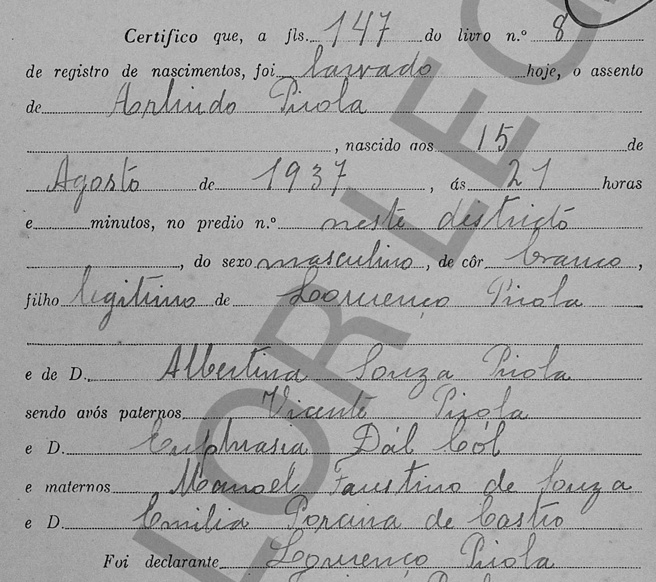 Certifico que, a fls. 147 do livro n.º 8
de registro de nascimentos, foi lavrado hoje, o assento
de Arlindo Pirola
, nascido aos 15 de
Agosto de 1937, ás 21 horas
e minutos, no predio n.º neste districto
, do sexo masculino, de côr branco,
filho legitimo de Lourenço Pirola
e de D. Albertina Souza Pirola
sendo avós paternos Vicente Pirola
e D. Euphrasia Dál Cól
e maternos Manoel Faustino de Souza
e D. Emilia Porcina de Castro
Foi declarante Lourenço Pirola